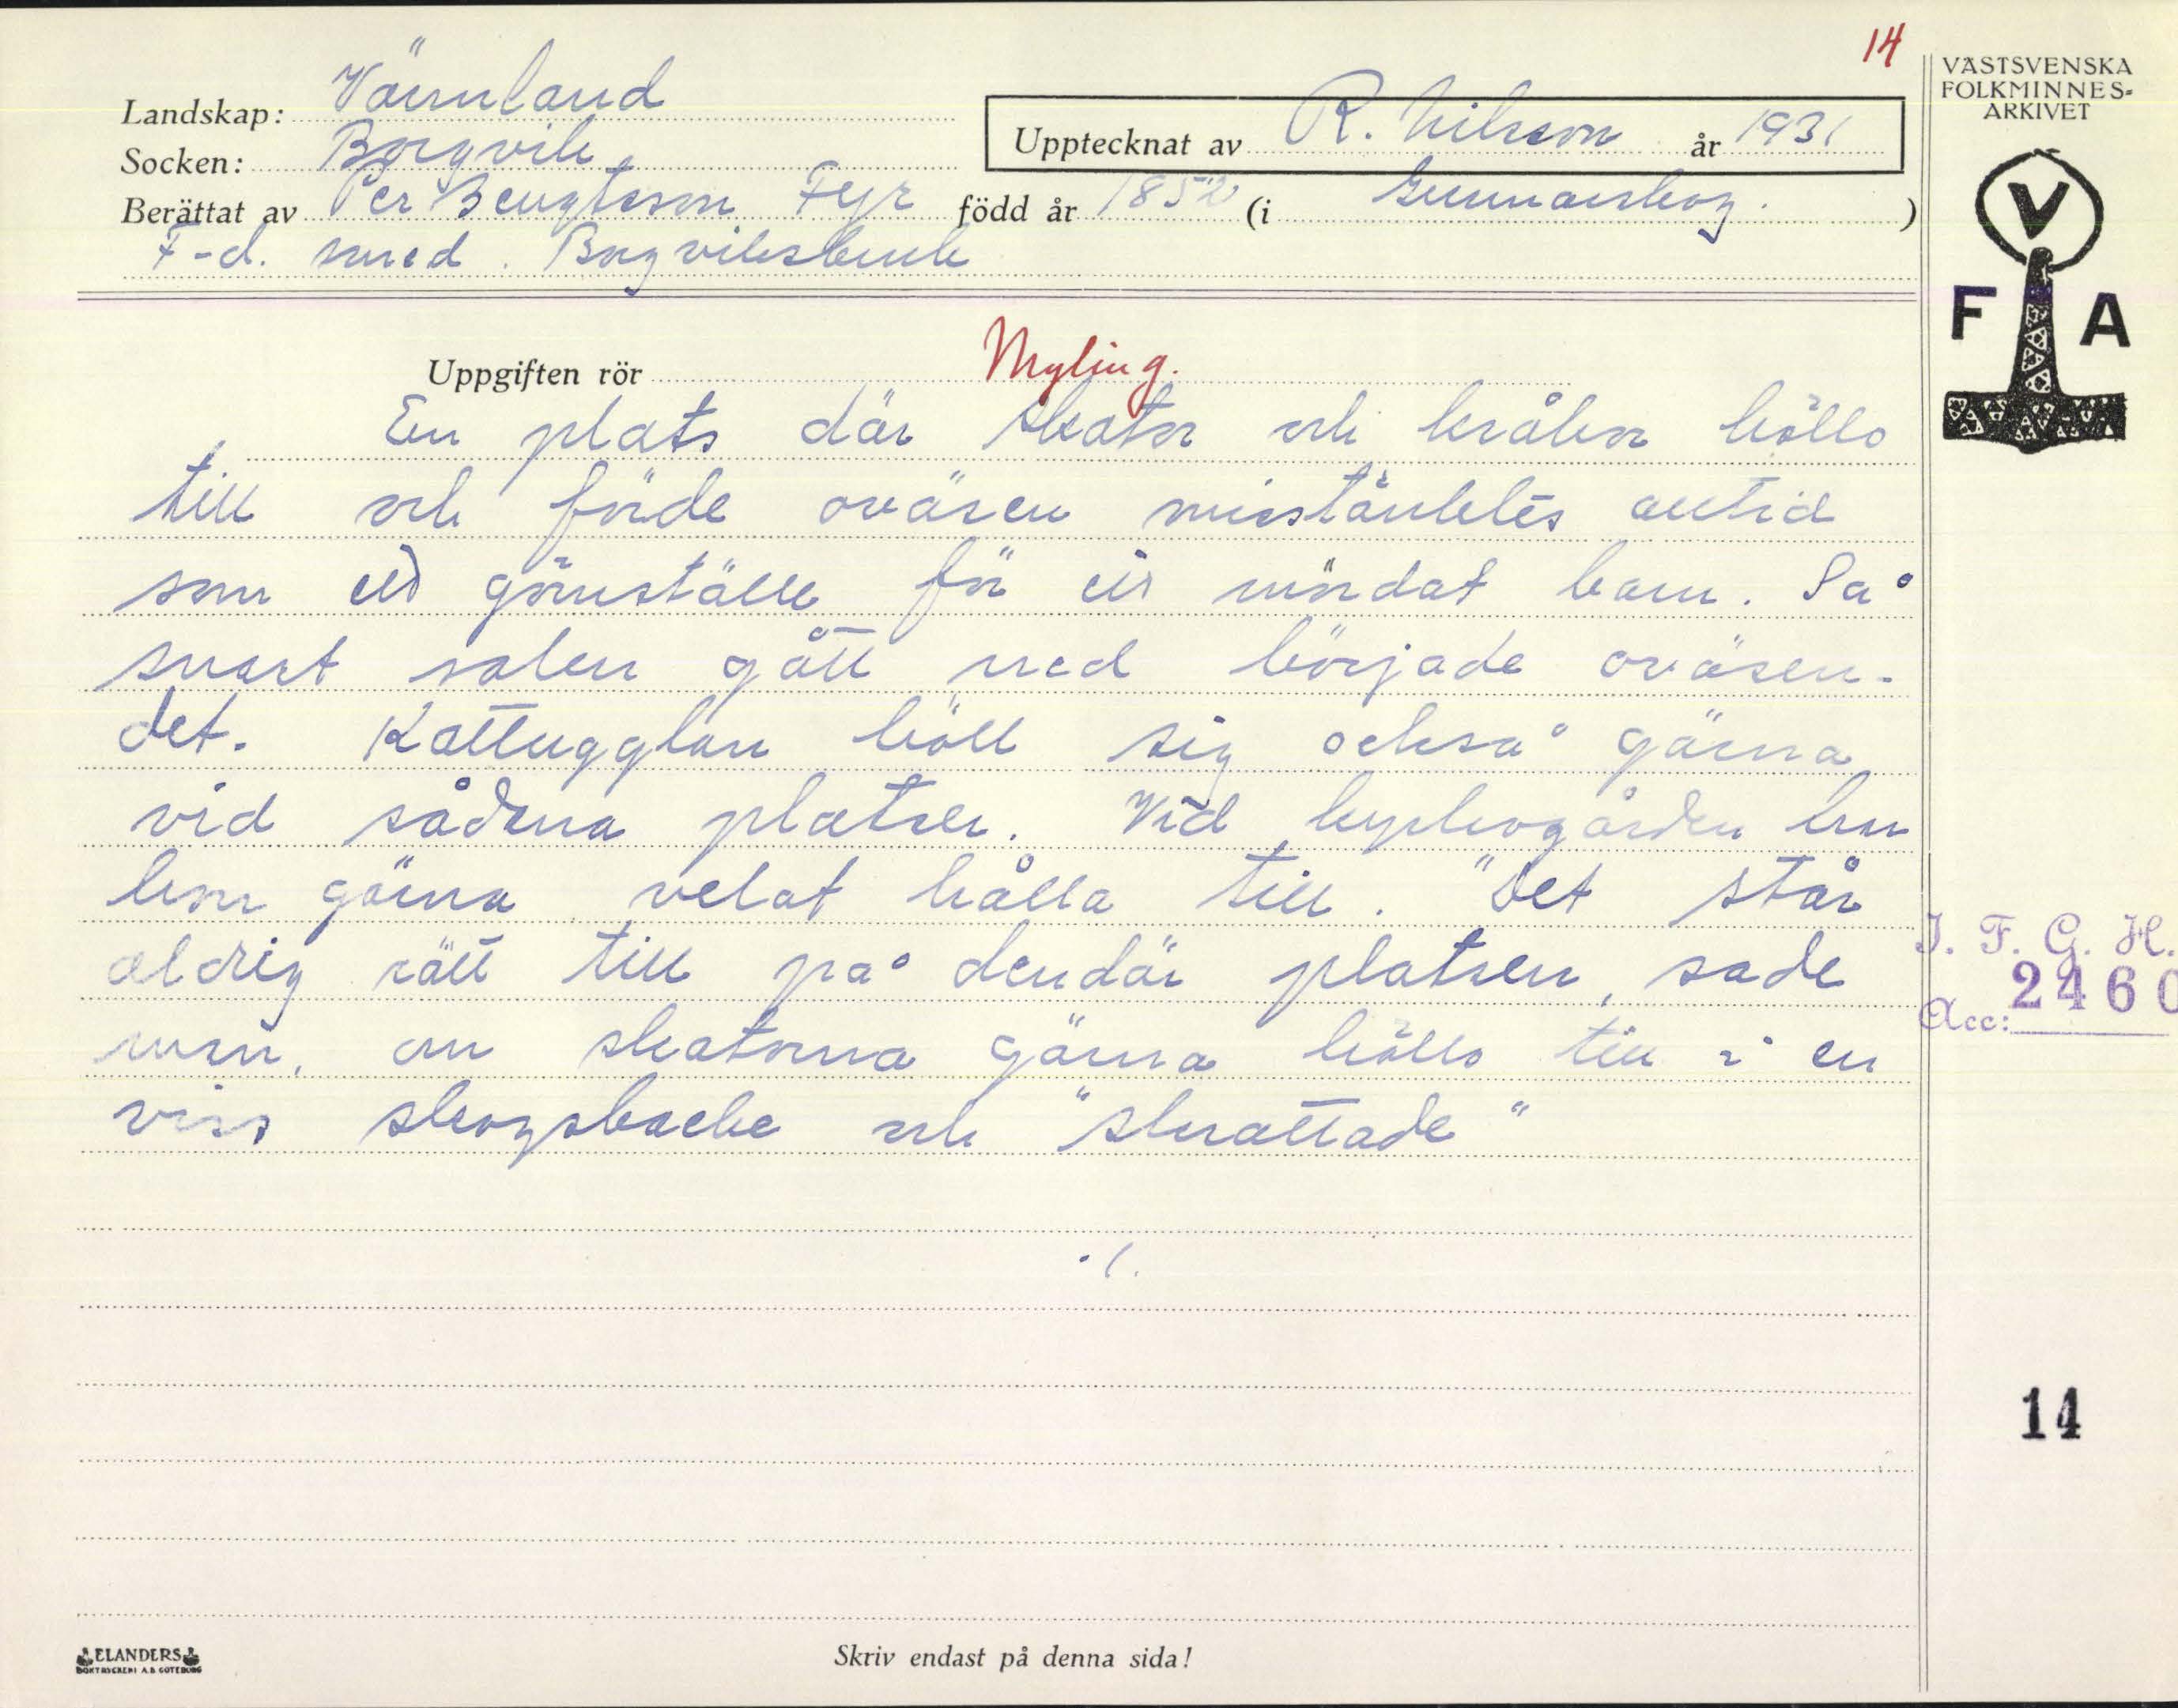 14
VÄSTSVENSKA
FOLKMINNES-
ARKIVET
Landskap: Värmland
Socken: Borgvik
Upptecknat av R. Nilsson år 1931
Berättat av Per Bengtsson Fyr född år 1852 (i Gunnarskog.)
F-d. smed. Borgviksbruk
V
F A
Uppgiften rör Myling.
En plats där skator och kråkor höllo
till och förde oväsen misstänktes alltid
som ett gömställe för ett mördat barn. Så
snart solen gått ned började oväsen-
det. Kattugglan höll sig också gärna
vid sådana platser. Vid kyrkogården
hon gärna velat hålla till. "Det står
aldrig rätt till på dendär platsen, sade
man, om skatorna gärna höllo till i en
viss skogsbacke och "skrattade"
./.
I. F. G. H.
2460
Acc:
14
ELANDERS
BOKTRYCKERI A.B. GÖTEBORG
Skriv endast på denna sida!